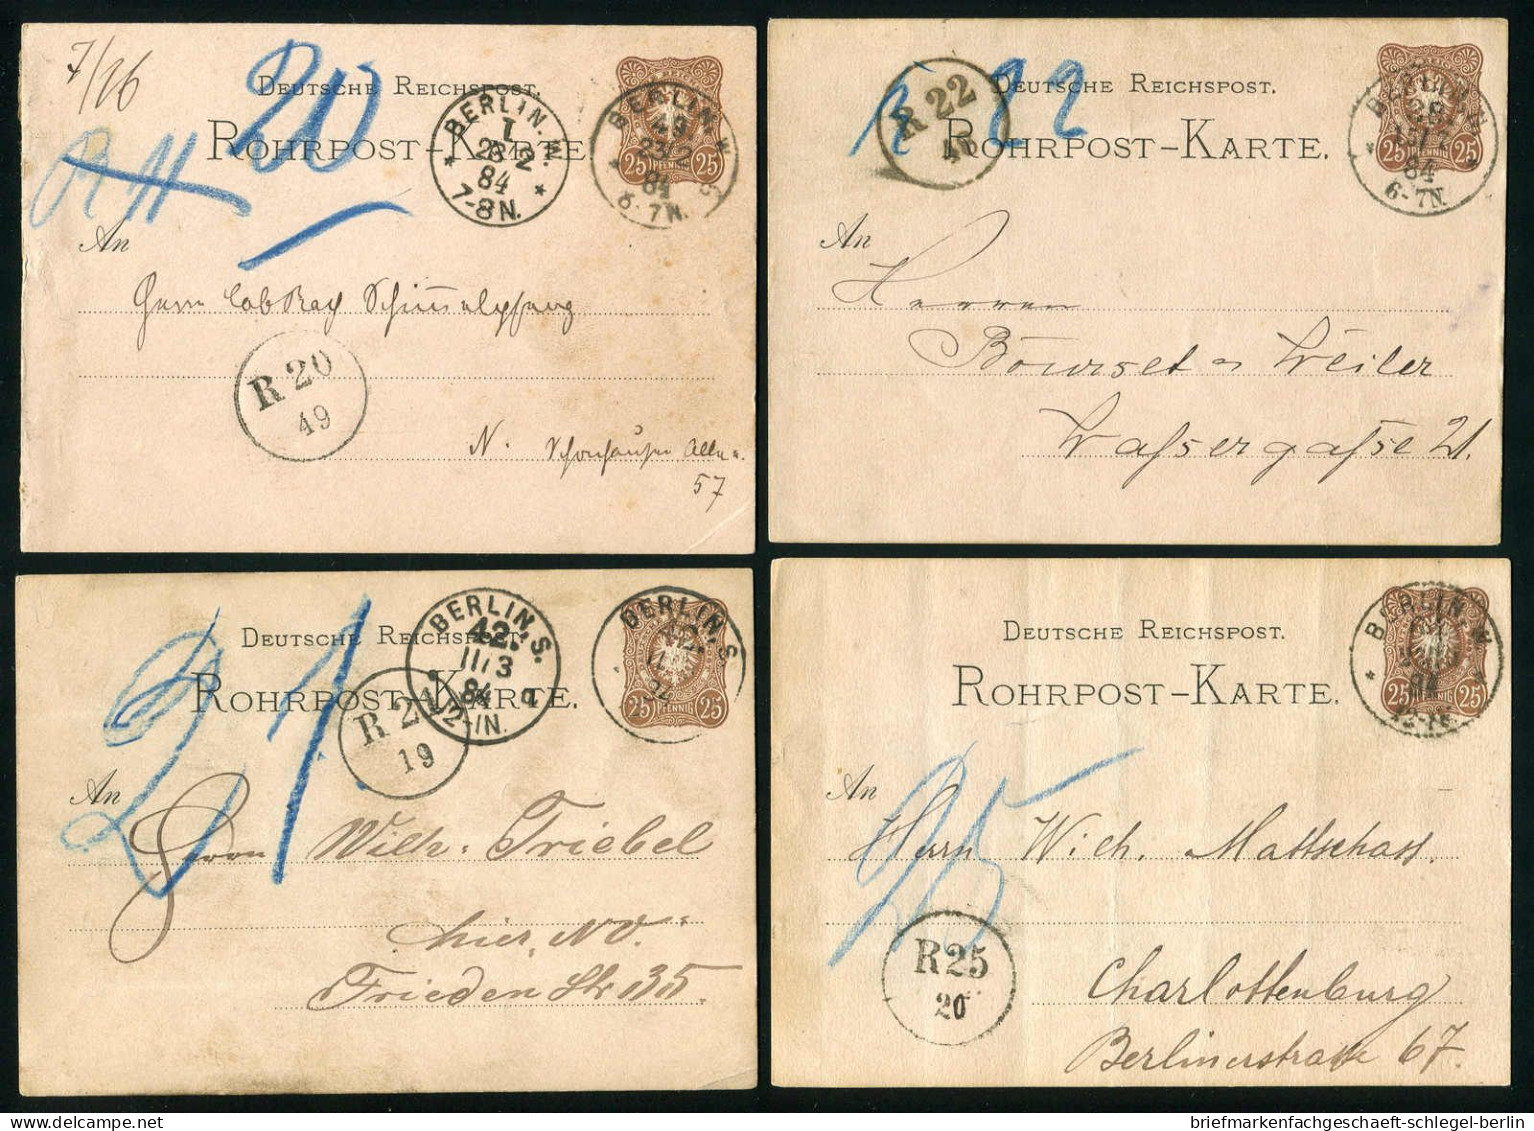 7/26
20
DEUTSCHE REICHSPOST.
ROHRPOST-KARTE.
BERLIN. N.
7
23 2
84
7-8N.
BERLIN. W
49
23/2
84
6-7N.
25 PFENNIG 25
An
Herrn
R 20
49
N. Schönhauser Allee
57
R 22
R 22
DEUTSCHE REICHSPOST.
ROHRPOST-KARTE.
84
6-7N.
25 PFENNIG 25
An
Herren
Bourset & Weiler
Wassergasse 21.
21
DEUTSCHE REICHSPOST.
ROHRPOST-KARTE.
BERLIN, S.
42.
11/3
84
12-1N.
BERLIN, S.
42.
25 PFENNIG 25
R 21
19
An
Herrn Wilh. Triebel
hier, NO.
Frieden Str 35.
DEUTSCHE REICHSPOST.
ROHRPOST-KARTE.
BERLIN. W
25 PFENNIG 25
An
25
Herrn Wich. Mattschass.
R25
20
Charlottenburg
Berlinerstrasse 67.
briefmarkenfachgeschaeft-schlegel-berlin